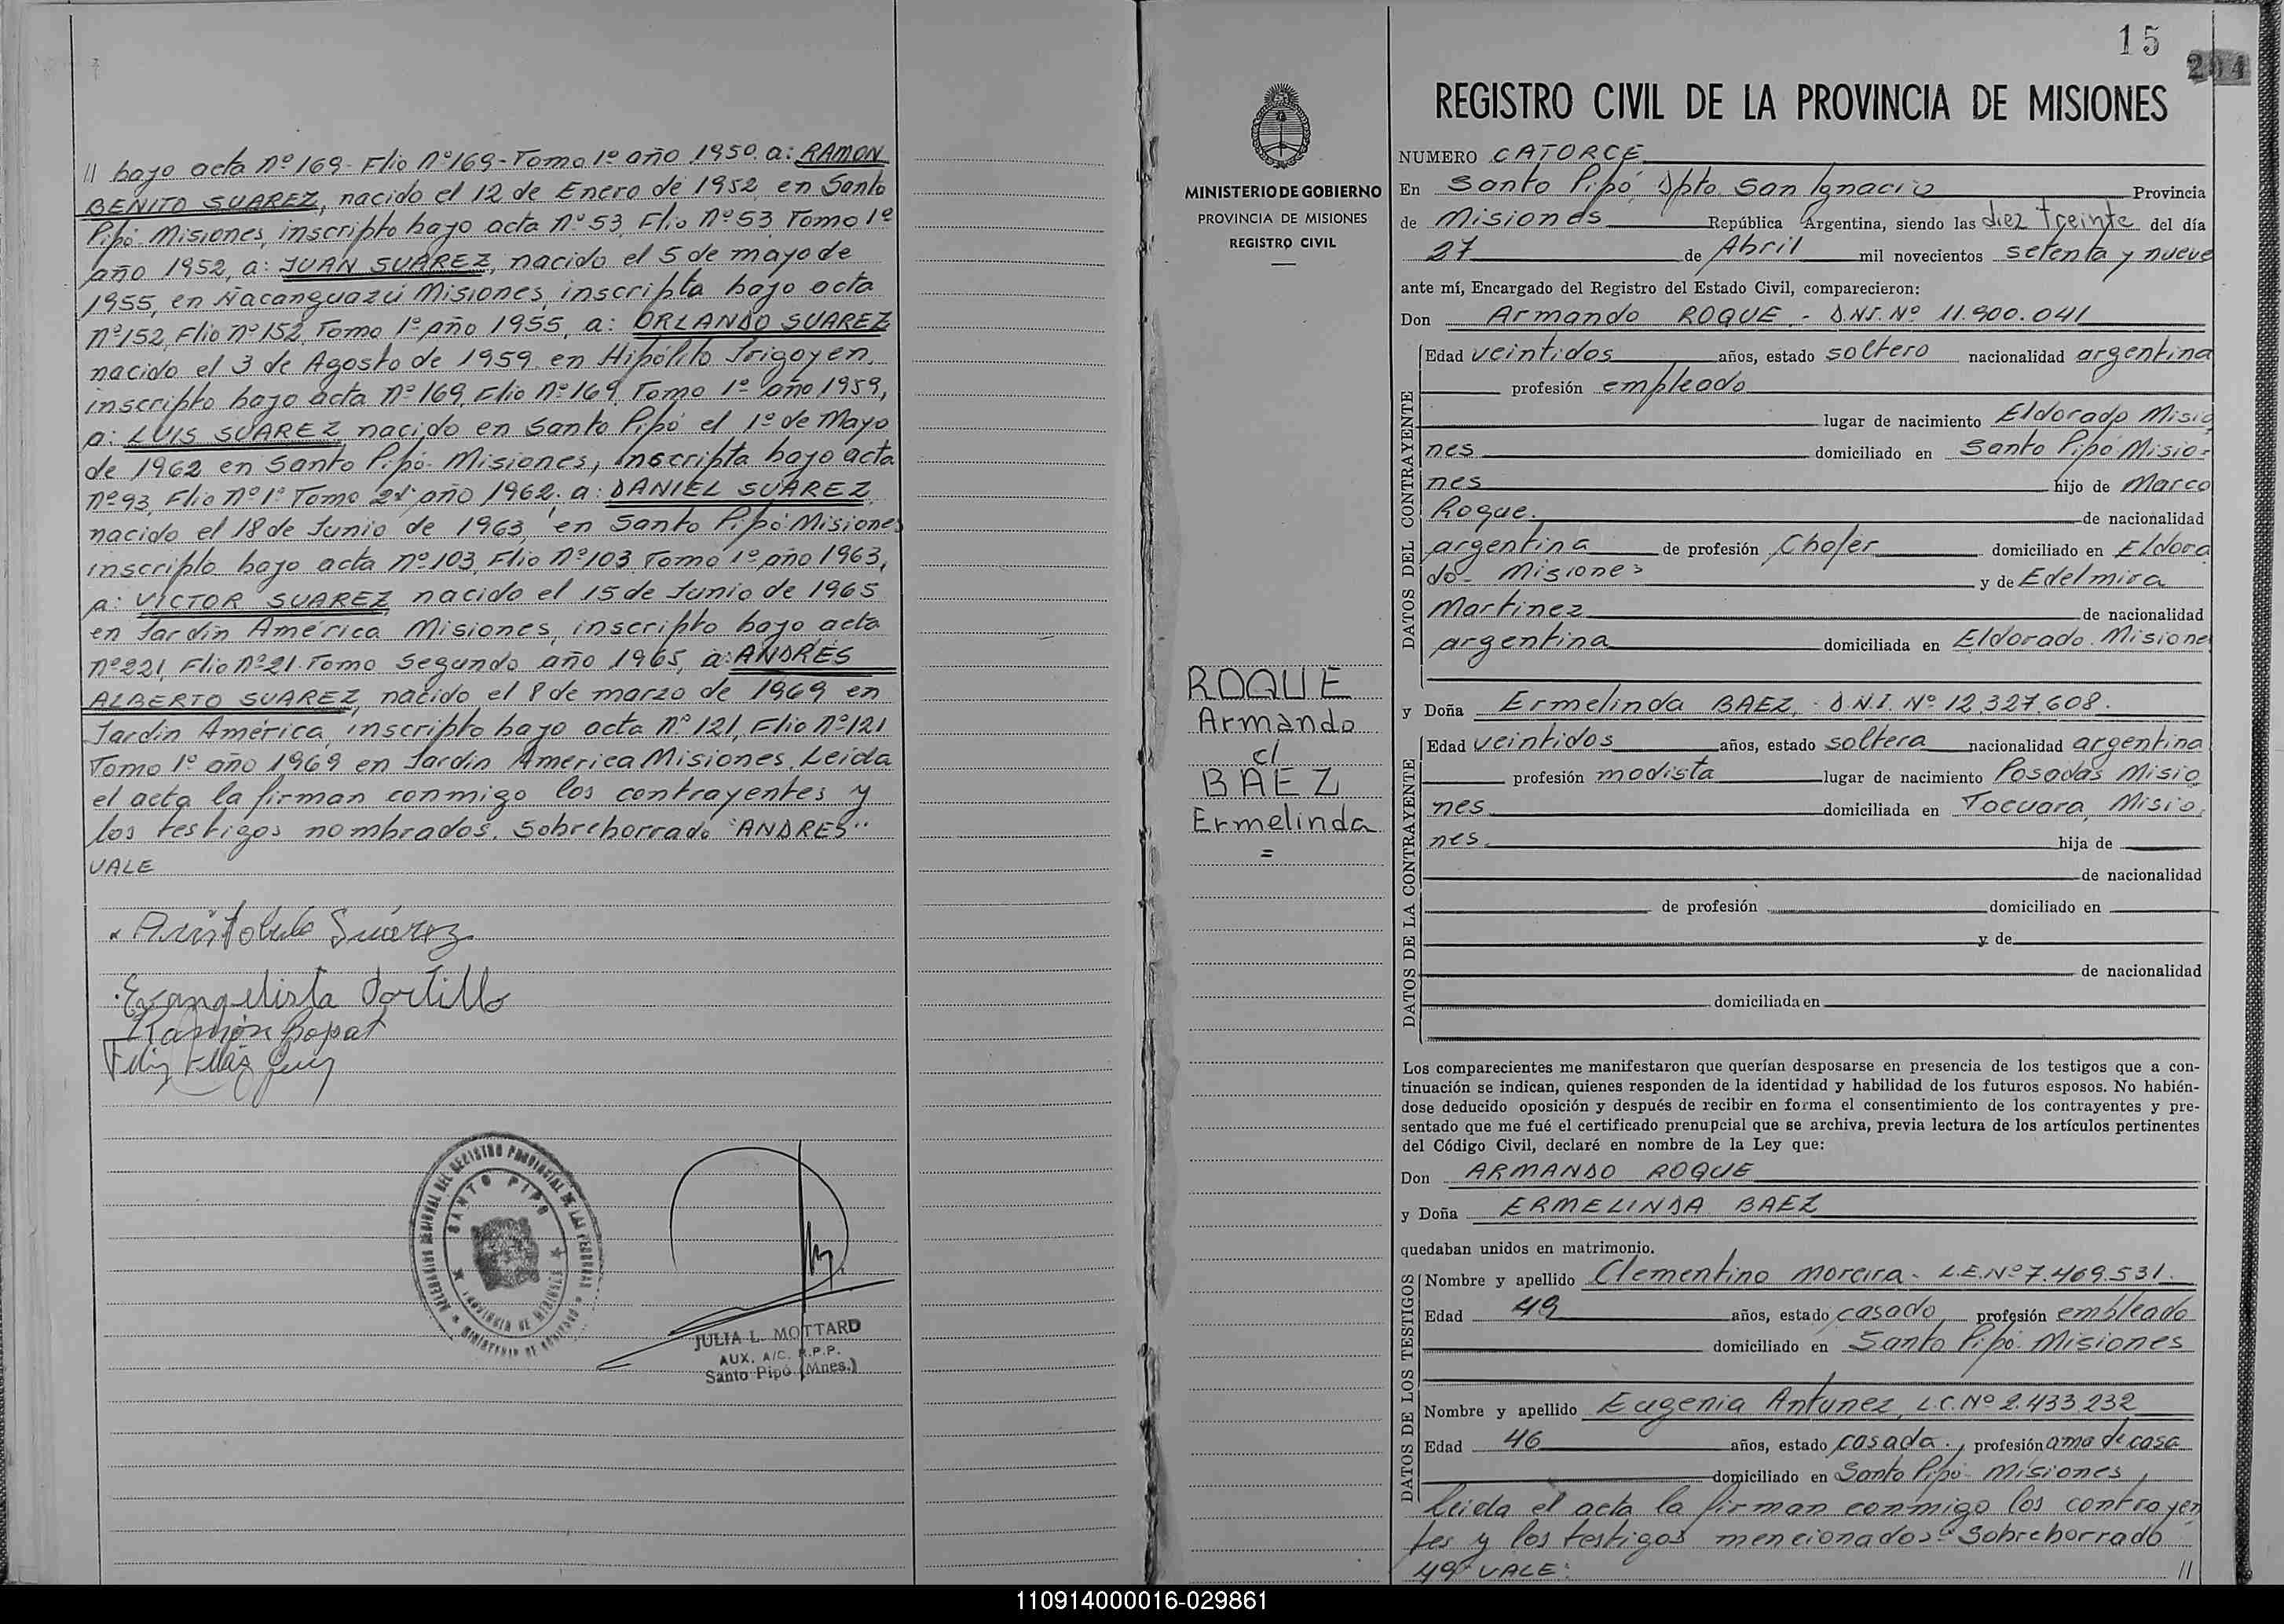 // bajo acta Nº 169- Flio Nº 169- Tomo 1º año 1950. a: RAMON
BENITO SUAREZ, nacido el 12 de Enero de 1952, en Santo
Pipó- Misiones, inscripto bajo acta Nº 53, Flio Nº 53, Tomo 1º
año 1952, a: JUAN SUAREZ, nacido el 5 de mayo de
1955, en Ñacanguazú Misiones, inscripta bajo acta
Nº 152, Flio Nº 152, Tomo 1º año 1955, a: ORLANDO SUAREZ
nacido el 3 de Agosto de 1959. en Hipólito Irigoyen.
inscripto bajo acta Nº 169, Flio Nº 169, Tomo 1º año 1959,
a: LUIS SUAREZ, nacido en Santo Pipó el 1º de Mayo
de 1962 en Santo Pipó- Misiones, Inscripta bajo acta
Nº 93, Flio Nº 1º Tomo 2º año 1962. a: DANIEL SUAREZ,
nacido el 18 de Junio de 1963, en Santo Pipó Misiones
inscripto bajo acta Nº 103, Flio Nº 103 Tomo 1º año 1963,
a: VICTOR SUAREZ, nacido el 15 de Junio de 1965
en Jardín América Misiones, inscripto bajo acta
Nº 221, Flio Nº 21. Tomo Segundo año 1965, a: ANDRÉS
ALBERTO SUAREZ, nacido el 8 de marzo de 1969 en
Jardín América, inscripto bajo acta Nº 121, Flio Nº 121
Tomo 1º año 1969 en Jardín America Misiones. Leida
el acta la firman conmigo los contrayentes y
los testigos nombrados. Sobreborrado "ANDRES"
VALE
Aristobulo Suárez
Evangelista Portillo
Ramón
SANTO PIPO
PROVINCIA DE MISIONES
JULIA L. MOTTARD
AUX. A/C. R.P.P.
Santo Pipó (Mnes.)
MINISTERIO DE GOBIERNO
PROVINCIA DE MISIONES
REGISTRO CIVIL
ROQUE
Armando
c/
BAEZ
Ermelinda
=
15
204
REGISTRO CIVIL DE LA PROVINCIA DE MISIONES
NUMERO CATORCE
En Santo Pipó, Dpto. San Ignacio Provincia
de Misiones República Argentina, siendo las diez treinte del día
27 de Abril mil novecientos setenta y nueve
ante mí, Encargado del Registro del Estado Civil, comparecieron:
Don Armando ROQUE - D.N.I. Nº 11.900.041
DATOS DEL CONTRAYENTE
Edad veintidos años, estado soltero nacionalidad argentina
profesión empleado
lugar de nacimiento Eldorado Misio
nes domiciliado en Santo Pipó Misio-
nes hijo de Marco
Roque. de nacionalidad
argentina de profesión Chofer domiciliado en Eldora
do- Misiones y de Edelmira
Martinez de nacionalidad
argentina domiciliada en Eldorado. Misione
y Doña Ermelinda BAEZ, - D.N.I. Nº 12.327.608.
DATOS DE LA CONTRAYENTE
Edad veintidos años, estado soltera nacionalidad argentina
profesión modista lugar de nacimiento Posadas Misio
nes domiciliada en Tacuara, Misio.
nes. hija de
de nacionalidad
de profesión domiciliado en
y de
de nacionalidad
domiciliada en
Los comparecientes me manifestaron que querían desposarse en presencia de los testigos que a con-
tinuación se indican, quienes responden de la identidad y habilidad de los futuros esposos. No habién-
dose deducido oposición y después de recibir en forma el consentimiento de los contrayentes y pre-
sentado que me fué el certificado prenupcial que se archiva, previa lectura de los artículos pertinentes
del Código Civil, declaré en nombre de la Ley que:
Don ARMANDO ROQUE
y Doña ERMELINDA BAEZ
quedaban unidos en matrimonio.
DATOS DE LOS TESTIGOS
Nombre y apellido Clementino Moreira - L.E. Nº 7.469.531.
Edad 49 años, estado casado profesión empleado
domiciliado en Santo Pipó- Misiones
Nombre y apellido Eugenia Antunez, L.C. Nº 2.433.232
Edad 46 años, estado casada., profesión ama de casa
domiciliado en Santo Pipó- Misiones,
Leida el acta la firman conmigo los contrayen
tes y los testigos mencionados- Sobreborrado
49- VALE: //
110914000016-029861